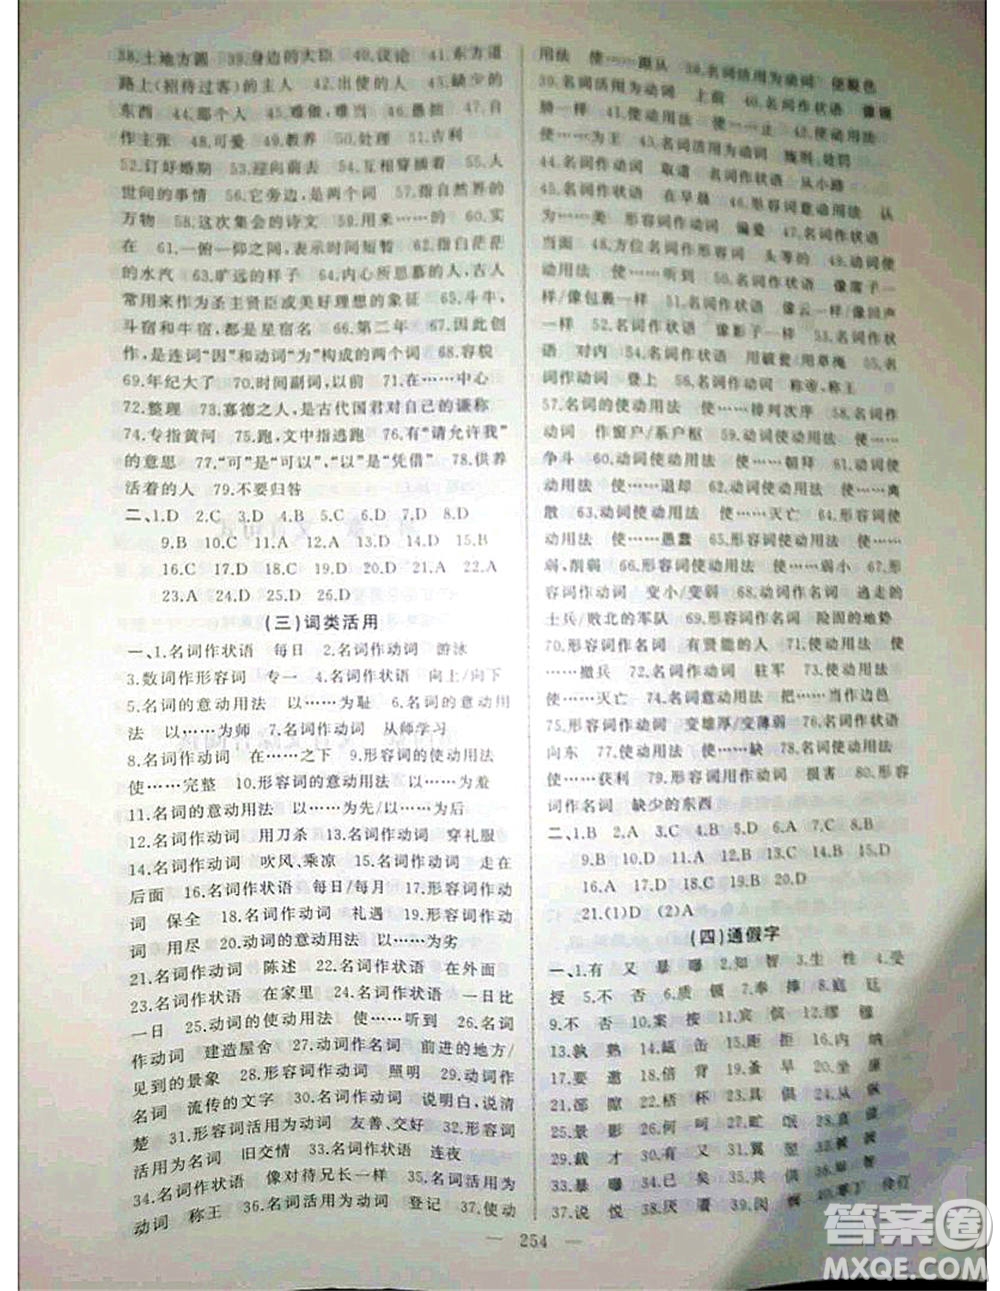 38.土地方圆 39.身边的大臣 40.议论 41.东方道
路上(招待过客)的主人 42.出使的人 43.缺少的
东西 44.那个人 45.难做,难当 46.愚拙 47.自
作主张 48.可爱 49.教养 50.处理 51.吉利
52.订好婚期 53.迎向前去 54.互相穿插着 55.人
世间的事情 56.它旁边,是两个词 57.指自然界的
万物 58.这次集会的诗文 59.用来……的 60.实
在 61.一俯一仰之间,表示时间短暂 62.白茫茫
的水汽 63.旷远的样子 64.内心所思慕的人,古人
常用来作为圣主贤臣或美好理想的象征 65.斗牛,
斗宿和牛宿,都是星宿名 66.第二年 67.因此创
作,是连词“因”和动词“为”构成的两个词 68.容貌
69.年纪大了 70.时间副词,以前 71.在……中心
72.整理 73.寡德之人,是古代国君对自己的谦称
74.专指黄河 75.跑,文中指逃跑 76.有“请允许我”
的意思 77.“可”是“可以”,“以”是“凭借” 78.供养
活着的人 79.不要归咎
二、1.D 2.C 3.D 4.B 5.C 6.D 7.D 8.D
9.B 10.C 11.A 12.A 13.D 14.C 15.B
16.C 17.D 18.A 19.C 20.D 21.A 22.A
23.A 24.D 25.D 26.D
(三)词类活用
一、1.名词作状语 每日 2.名词作动词 游泳
3.数词作形容词 专一 4.名词作状语 向上/向下
5.名词的意动用法 以……为耻 6.名词的意动用
法 以……为师 7.名词作动词 从师学习
8.名词作动词 在……之下 9.形容词的使动用法
使…完整 10.形容词的意动用法 以……为羞
11.名词的意动用法 以……为先/以……为后
12.名词作动词 用刀杀 13.名词作动词 穿礼服
14.名词作动词 吹风,乘凉 15.名词作动词 走在
后面 16.名词作状语 每日/每月 17.形容词作动
词 保全 18.名词作动词 礼遇 19.形容词作动
词 用尽 20.动词的意动用法 以……为劣
21.名词作动词 陈述 22.名词作状语 在外面
23.名词作状语 在家里 24.名词作状语 一日比
一日 25.动词的使动用法 使……听到 26.名词
作动词 建造屋舍 27.动词作名词 前进的地方/
见到的景象 28.形容词作动词 照明 29.动词作
名词 流传的文字 30.名词作动词 说明白,说清
楚 31.形容词活用为动词 友善、交好 32.形容词
活用为名词 旧交情 33.名词作状语 连夜
34.名词作状语 像对待兄长一样 35.名词作
动词 称王 36.名词活用为动词 登记 37.使动
用法 使……跟从 38.名词活用为动词 使脱色
39.名词活用为动词 上前 40.名词作状语
一样 41.动词使动用法 使……止
使……为王 43.名词活用为动词
44.名词作动词 取道 44.名词作状语 从小路
45.名词作状语 在早晨 46.形容词意动用法 认
为……美 形容词作动词 偏爱 47.名词作状语
当面 48.方位名词作形容词 头等的 49.动词使
动用法 使……听到 50.名词作状语 像席子一
样/像包裹一样 51.名词作状语 像云一样/像回声
一样 52.名词作状语 像影子一样 53.名词作状
语 对内 54.名词作状语
名词作动词 登上 56.名词作动词 称帝,称王
57.名词的使动用法 使……排列次序 58.名词作
动词 作窗户/系户框 59.动词使动用法 使……
争斗 60.动词使动用法 使……朝拜 61.动词使
动用法 使……退却 62.动词使动用法 使……离
散 63.动词使动用法 使……灭亡 64.形容词使
动用法 使……愚蠢 65.形容词使动用法 使……
弱,削弱 66.形容词使动用法 使……弱小 67.形
容词作动词 变小/变弱 68.动词作名词 逃走的
士兵/败北的军队 69.形容词作名词 险固的地势
70.形容词作名词 有贤能的人 71.动词使动用法
使……撤兵 72.名词作动词 驻军 73.使动用法
使……灭亡 74.名词意动用法 把……当作边邑
75.形容词作动词 变雄厚/变薄弱 76.名词作状语
向东 77.使动用法 使……缺 78.动词使动用法
使……获利 79.形容词用作动词 损害 80.形容
词作名词 缺少的东西
二、1.B 2.A 3.C 4.D 5.D 6.A 7.C 8.B
9.B 10.D 11.D 12.D 13.A 14.C 15.B
16.A 17.D 18.A 19.B 20.D
21.(1)D (2)A
(四)通假字
一、1.有 又 暴 曝 2.知 智 3.生 性 4.受
授 5.不 否 6.质 锧 7.奉 捧 8.庭 廷
9.不 否 10.案 按 11.宾 傧 12.缪 穆
13.孰 熟 14.缻 缶 15.距 拒 16.内 纳
17.要 邀 18.
19.蚤 早 20.坐 座
21.郤 隙 22.
23. 24.具 俱
25.景 影 26.
28.
29.裁 才 30.有 又 31.
33.暴 34.已 矣 35.共 供
37.说 悦 38.厌 餍 39.闵 悯
254
答案圈
MXQE.COM